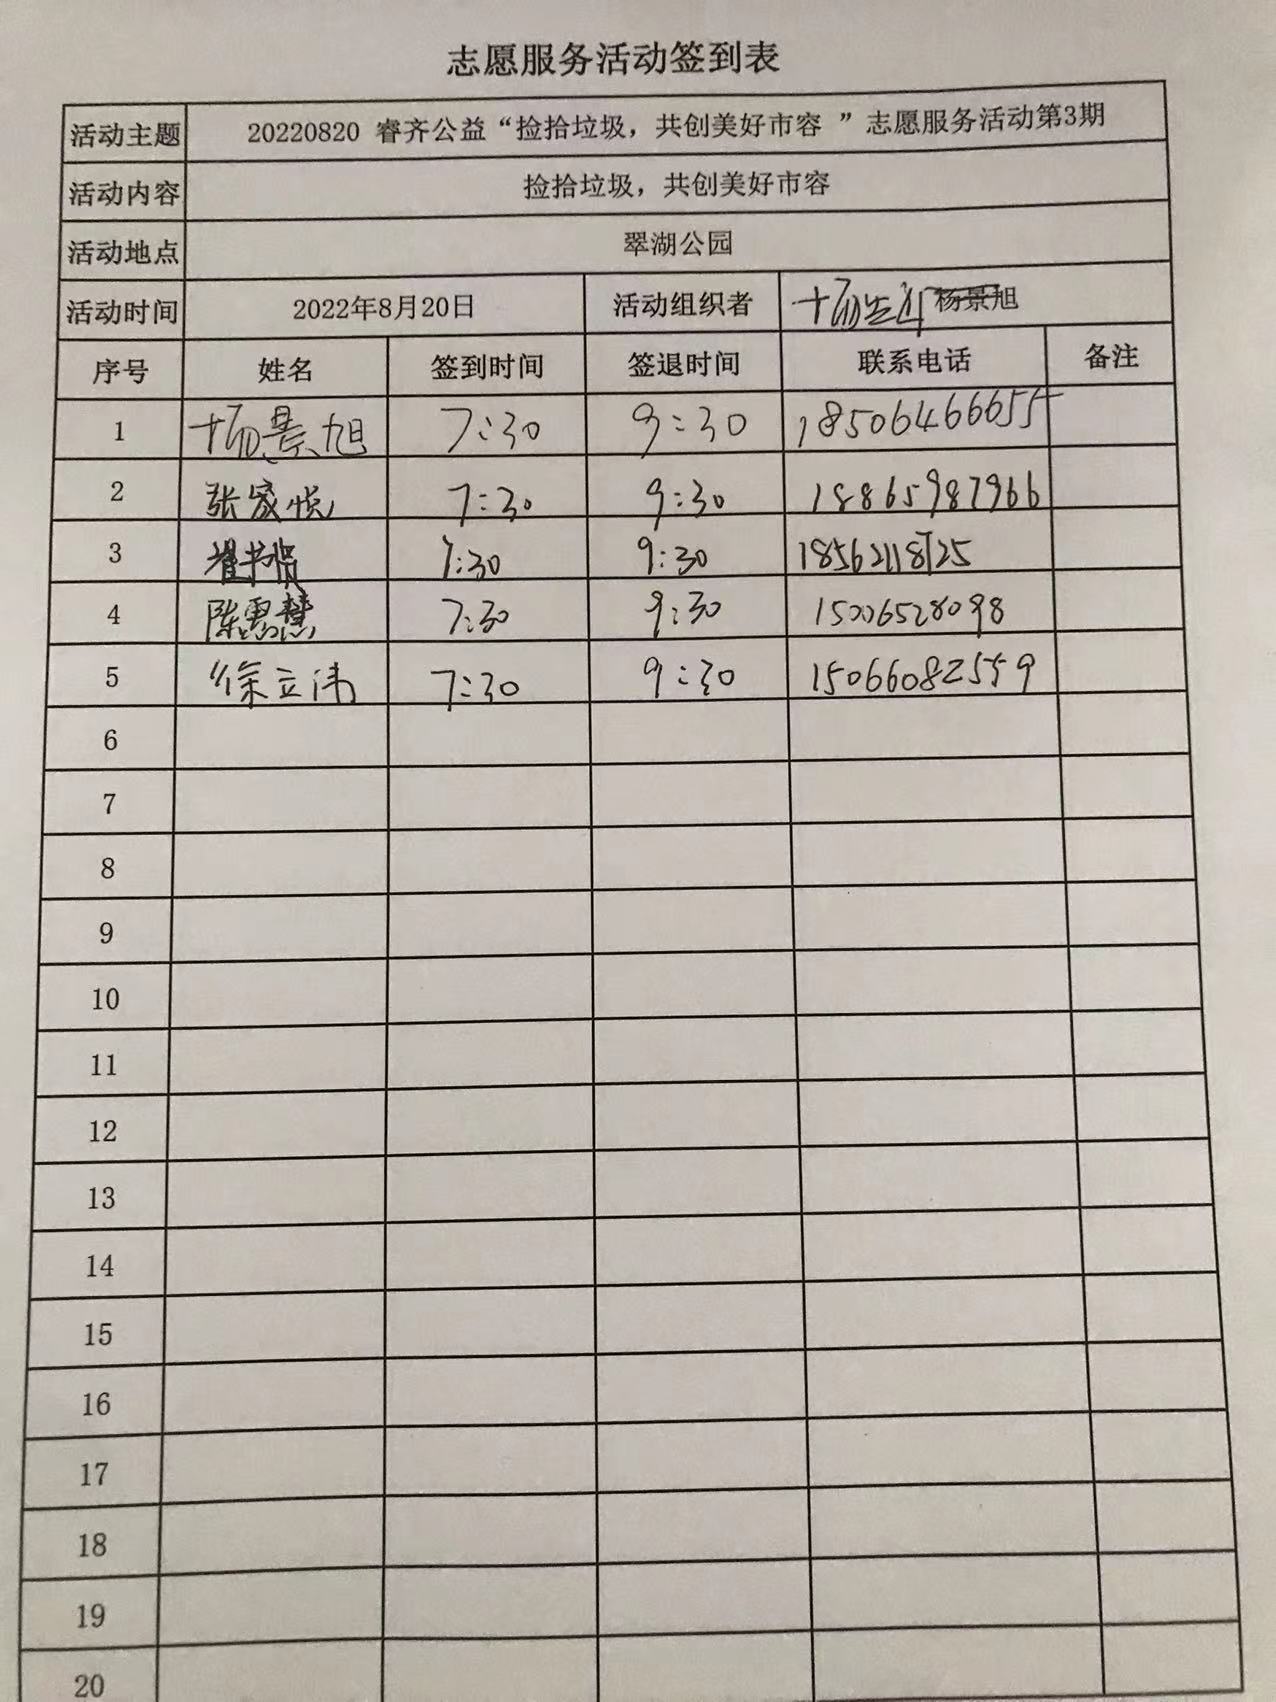 志愿服务活动签到表
活动主题 20220820 睿齐公益“捡拾垃圾，共创美好市容 ”志愿服务活动第3期
活动内容 捡拾垃圾，共创美好市容
活动地点 翠湖公园
活动时间 2022年8月20日 活动组织者 杨景旭
序号 姓名 签到时间 签退时间 联系电话 备注
1 杨景旭 7:30 9:30 18506466655
2 张家悦 7:30 9:30 18865987966
3 7:30 9:30 18562118725
4 陈惠慧 7:30 9:30 15006528098
5 徐立伟 7:30 9:30 15066082559
6
7
8
9
10
11
12
13
14
15
16
17
18
19
20